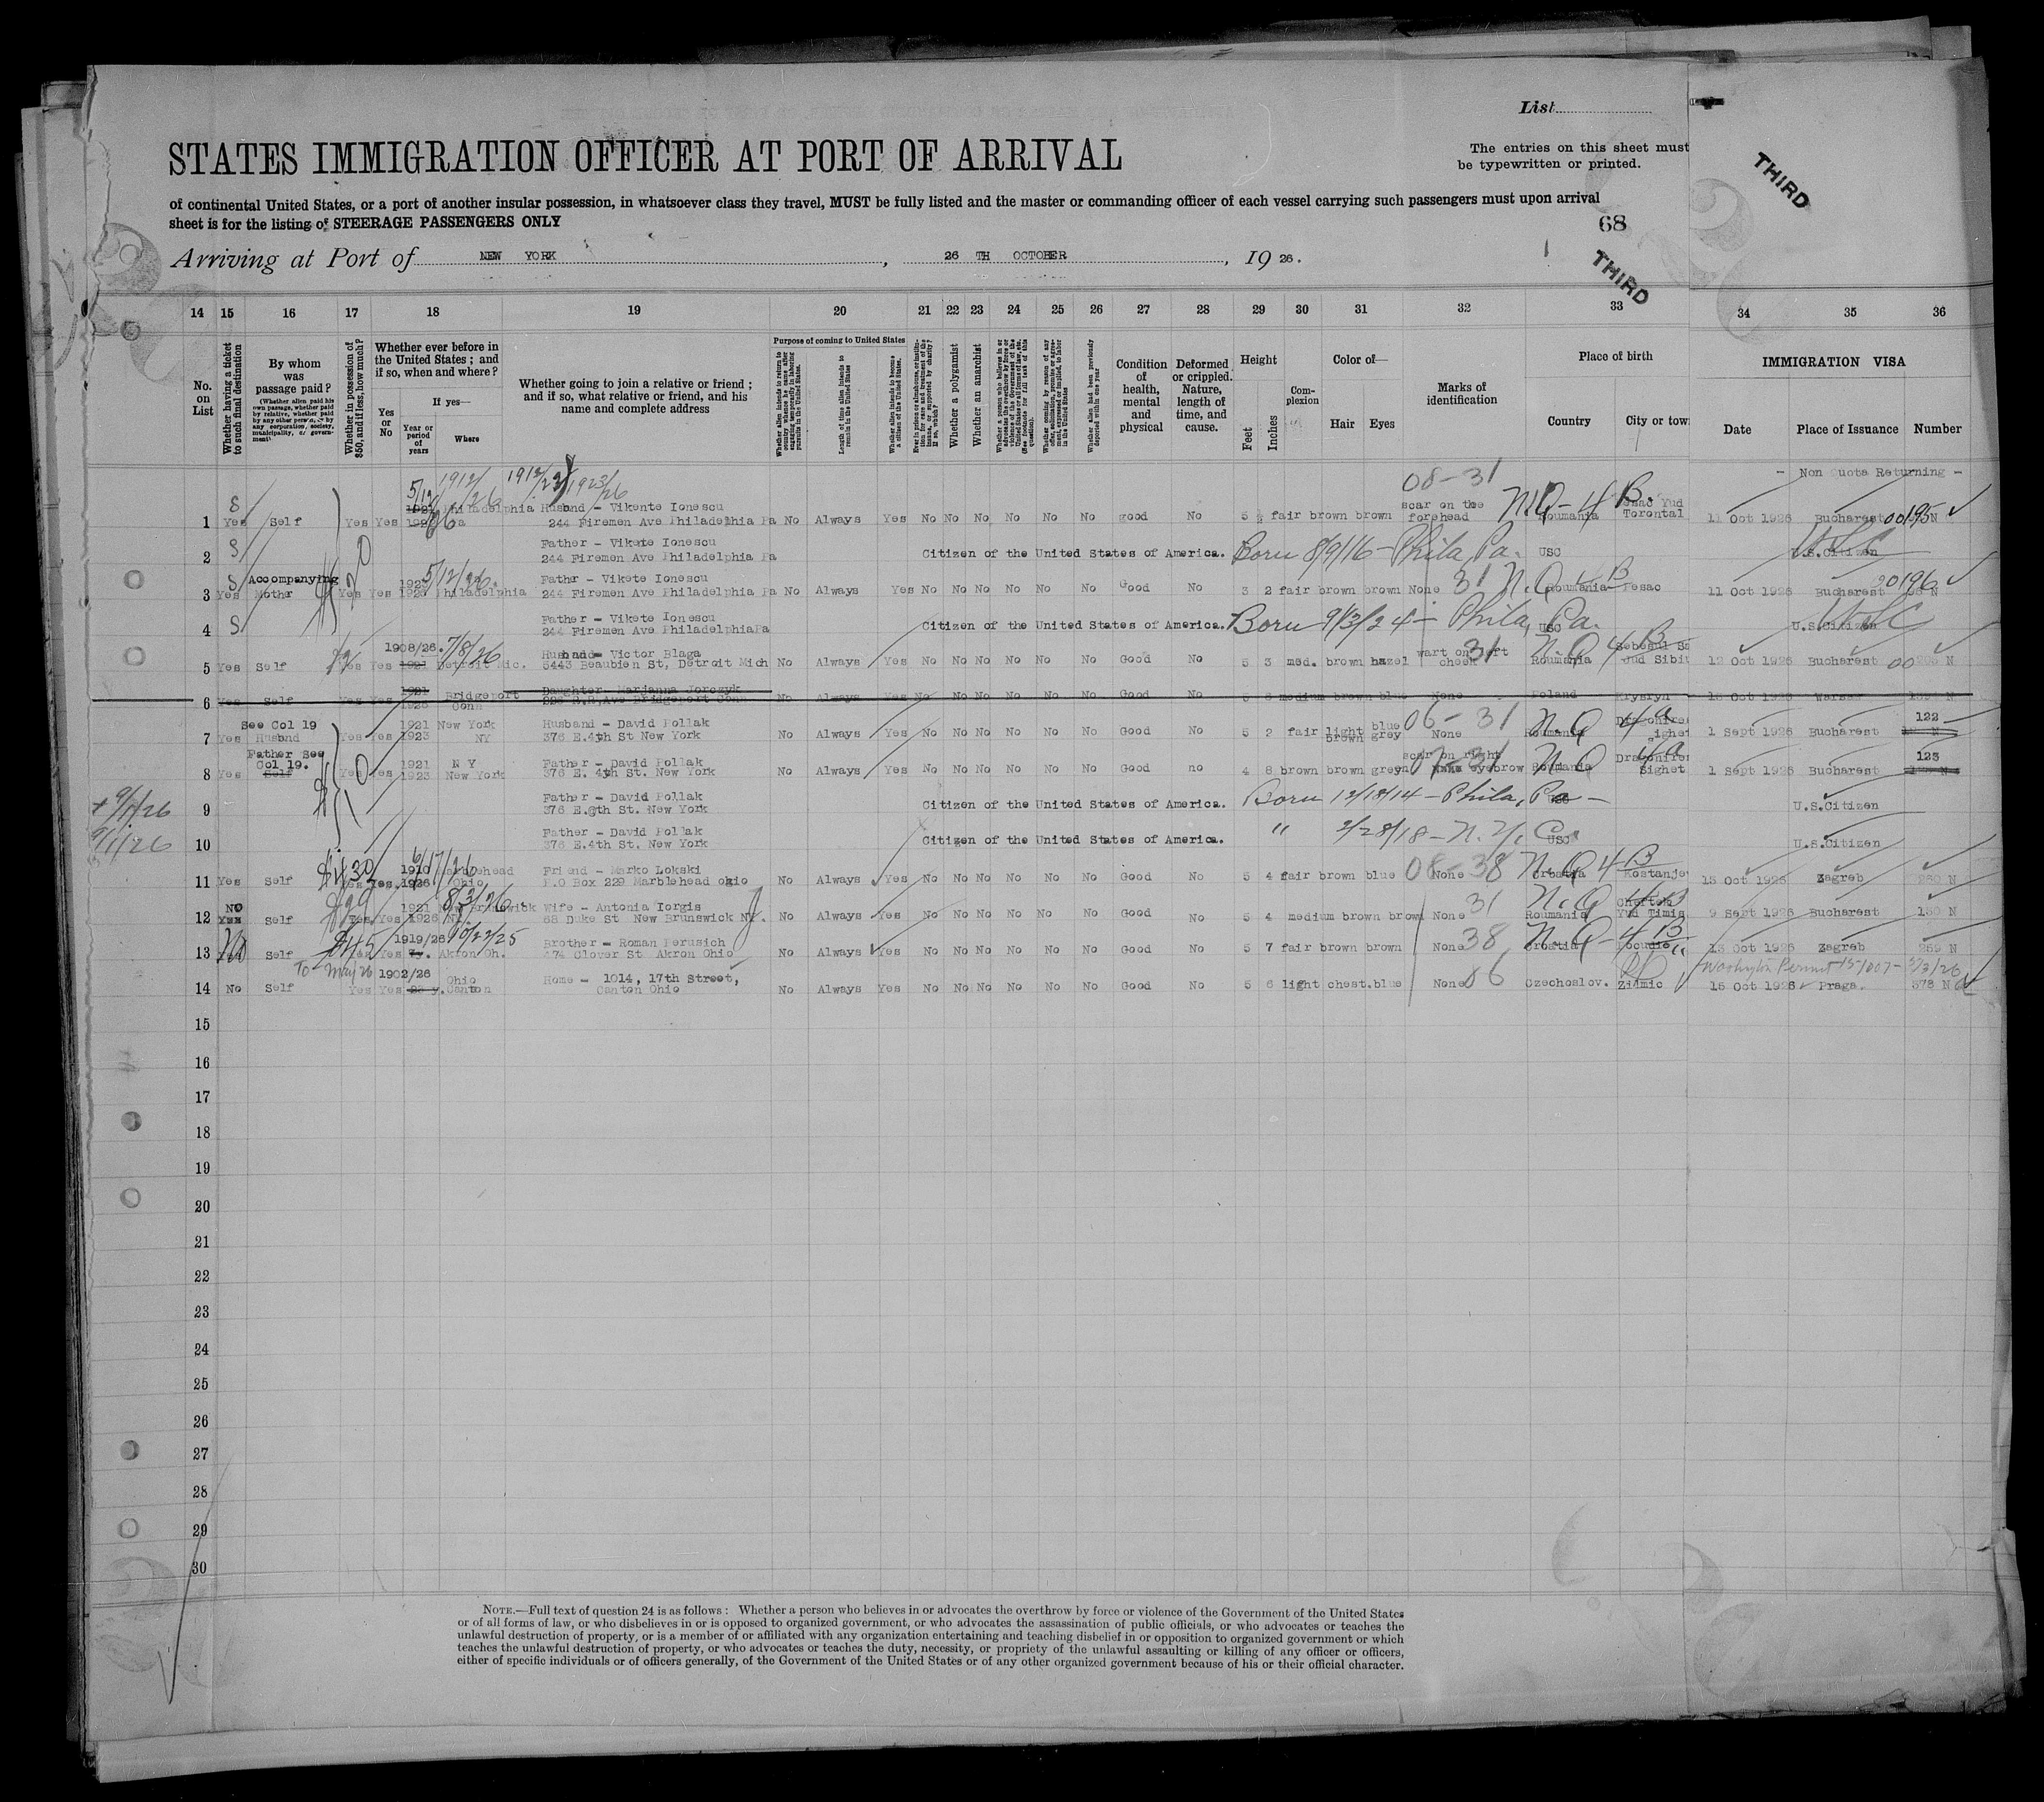 List
STATES IMMIGRATION OFFICER AT PORT OF ARRIVAL
The entries on this sheet must
be typewritten or printed.
THIRD
of continental United States, or a port of another insular possession, in whatsoever class they travel, MUST be fully listed and the master or commanding officer of each vessel carrying such passengers must upon arrival
sheet is for the listing of STEERAGE PASSENGERS ONLY
68
THIRD
Arriving at Port of NEW YORK, 26 TH OCTOBER, 19 26.
14 15 16 17 18 19 20 21 22 23 24 25 26 27 28 29 30 31 32 33 34 35 36
No. on List
Whether having a ticket to such final destination
By whom was passage paid?
(Whether alien paid his own passage, whether paid by relative, whether paid by any other person, or by any corporation, society, municipality, or government)
Whether in possession of $50, and if less, how much?
Whether ever before in the United States; and if so, when and where?
Yes or No
If yes—
Year or period of years
Where
Whether going to join a relative or friend; and if so, what relative or friend, and his name and complete address
Purpose of coming to United States
Whether alien intends to return to country whence he came after engaging temporarily in laboring pursuits in the United States.
Length of time alien intends to remain in the United States
Whether alien intends to become a citizen of the United States.
Whether a polygamist
Whether an anarchist
Whether coming by reason of any offer, solicitation, promise or agreement, expressed or implied, to labor in the United States
Whether alien had been previously deported within one year
Condition of health, mental and physical
Deformed or crippled. Nature, length of time, and cause.
Height
Feet
Inches
Complexion
Color of—
Hair Eyes
Marks of identification
Place of birth
Country City or tow
IMMIGRATION VISA
Date Place of Issuance Number
- Non Quota Returning -
1912/26 1923/26 08-31
5/12/26 Philadelphia Husband - Vikente Ionescu scar on the N.Q-4 B.
1 S Yes Self Yes Yes Pa 244 Firemen Ave Philadelphia Pa No Always Yes No No No No No No good No 5 fair brown brown forehead Roumania Torontal 11 Oct 1926 Bucharest 00195N
Father - Vikete Ionescu
2 S 244 Firemen Ave Philadelphia Pa Citizen of the United States of America. Born 8/9/16 - Phila, Pa. USC U.S.Citizen
Accompanying 5/12/26. Fathr - Vikete Ionescu
3 S Yes Mothr Yes Yes Philadelphia 244 Firemen Ave Philadelphia Pa No Always Yes No No No No No No Good No 3 2 fair brown brown None 31 N.Q 4 B Roumania Pesac 11 Oct 1926 Bucharest 00196 N
Father - Vikete Ionescu
4 S 244 Firemen Ave PhiladelphiaPa Citizen of the United States of America. Born 9/13/24 - Phila, Pa. USC U.S.Citizen
1908/26. 7/8/26 Husband - Victor Blaga wart on left
5 Yes Self Yes Yes 1921 Detroit Mic. 5443 Beaubien St, Detroit Mich No Always Yes No No No No No No Good No 5 3 med. brown hazel cheek 31 N.Q 4 B Roumania Jud Sibi 12 Oct 1926 Bucharest
1921 Bridgeport Daughter Marianna Jorczyk
6 Yes Self Yes Yes 1926 Conn Ave Bridgeport Conn No Always Yes No No No No No No Good No 5 medium brown blue None Poland Oct 1926 Warsaw
See Col 19 1921 New York Husband - David Pollak blue 06-31 N.Q 4 a 122
7 Yes Husband Yes Yes 1923 NY 376 E.4th St New York No Always Yes No No No No No No Good No 5 2 fair light brown grey None Roumania Sighet 1 Sept 1926 Bucharest
Father See Col 19. 1921 N Y Father - David Pollak scar on right N Q 4 a 123
8 Yes Self Yes Yes 1923 New York 376 E. 4th St. New York No Always Yes No No No No No No Good no 4 8 brown brown grey eyebrow Roumania Sighet 1 Sept 1926 Bucharest
Father - David Pollak
9 376 E.6th St. New York Citizen of the United States of America. Born 12/13/14 - Phila, Pa - U.S.Citizen
9/1/26
9/1/26
Father - David Pollak
10 376 E.4th St. New York Citizen of the United States of America. " 2/28/18 - N.Y. C. USC U.S.Citizen
6/17/26 1910 Marblehead Friend - Marko Lokski
11 Yes Self Yes Yes 1926 Ohio P.O Box 229 Marblehead ohio No Always Yes No No No No No No Good No 5 4 fair brown blue None 08-38 N.Q 4 B Croatia Kostanje 15 Oct 1926 Zagreb 260 N
NO 1921 8/3/26 Wife - Antonia Iorgis
12 Yes Self $29 Yes Yes 1926 NJ. 88 Duke St New Brunswick NJ. No Always Yes No No No No No No Good No 5 4 medium brown brown None 31 N.Q 4 B Roumania Yud Timis 9 Sept 1926 Bucharest 130 N
1919/26 10/22/25 Brother - Roman Perusich
13 No Self $45 Yes Yes Akron Oh. 674 Clover St Akron Ohio No Always Yes No No No No No No Good No 5 7 fair brown brown None 38 N.Q-4 B Croatia 13 Oct 1926 Zagreb 259 N
To May 26 1902/26 Ohio Home - 1014, 17th Street, Washington Permit
14 No Self Yes Yes Canton Canton Ohio No Always Yes No No No No No No Good No 5 6 light chest.blue None 06 Czechoslov. Zidmic 15 Oct 1926 Praga. 378 N
15
16
17
18
19
20
21
22
23
24
25
26
27
28
29
30
NOTE.—Full text of question 24 is as follows: Whether a person who believes in or advocates the overthrow by force or violence of the Government of the United States
or of all forms of law, or who disbelieves in or is opposed to organized government, or who advocates the assassination of public officials, or who advocates or teaches the
unlawful destruction of property, or is a member of or affiliated with any organization entertaining and teaching disbelief in or opposition to organized government or which
teaches the unlawful destruction of property, or who advocates or teaches the duty, necessity, or propriety of the unlawful assaulting or killing of any officer or officers,
either of specific individuals or of officers generally, of the Government of the United States or of any other organized government because of his or their official character.